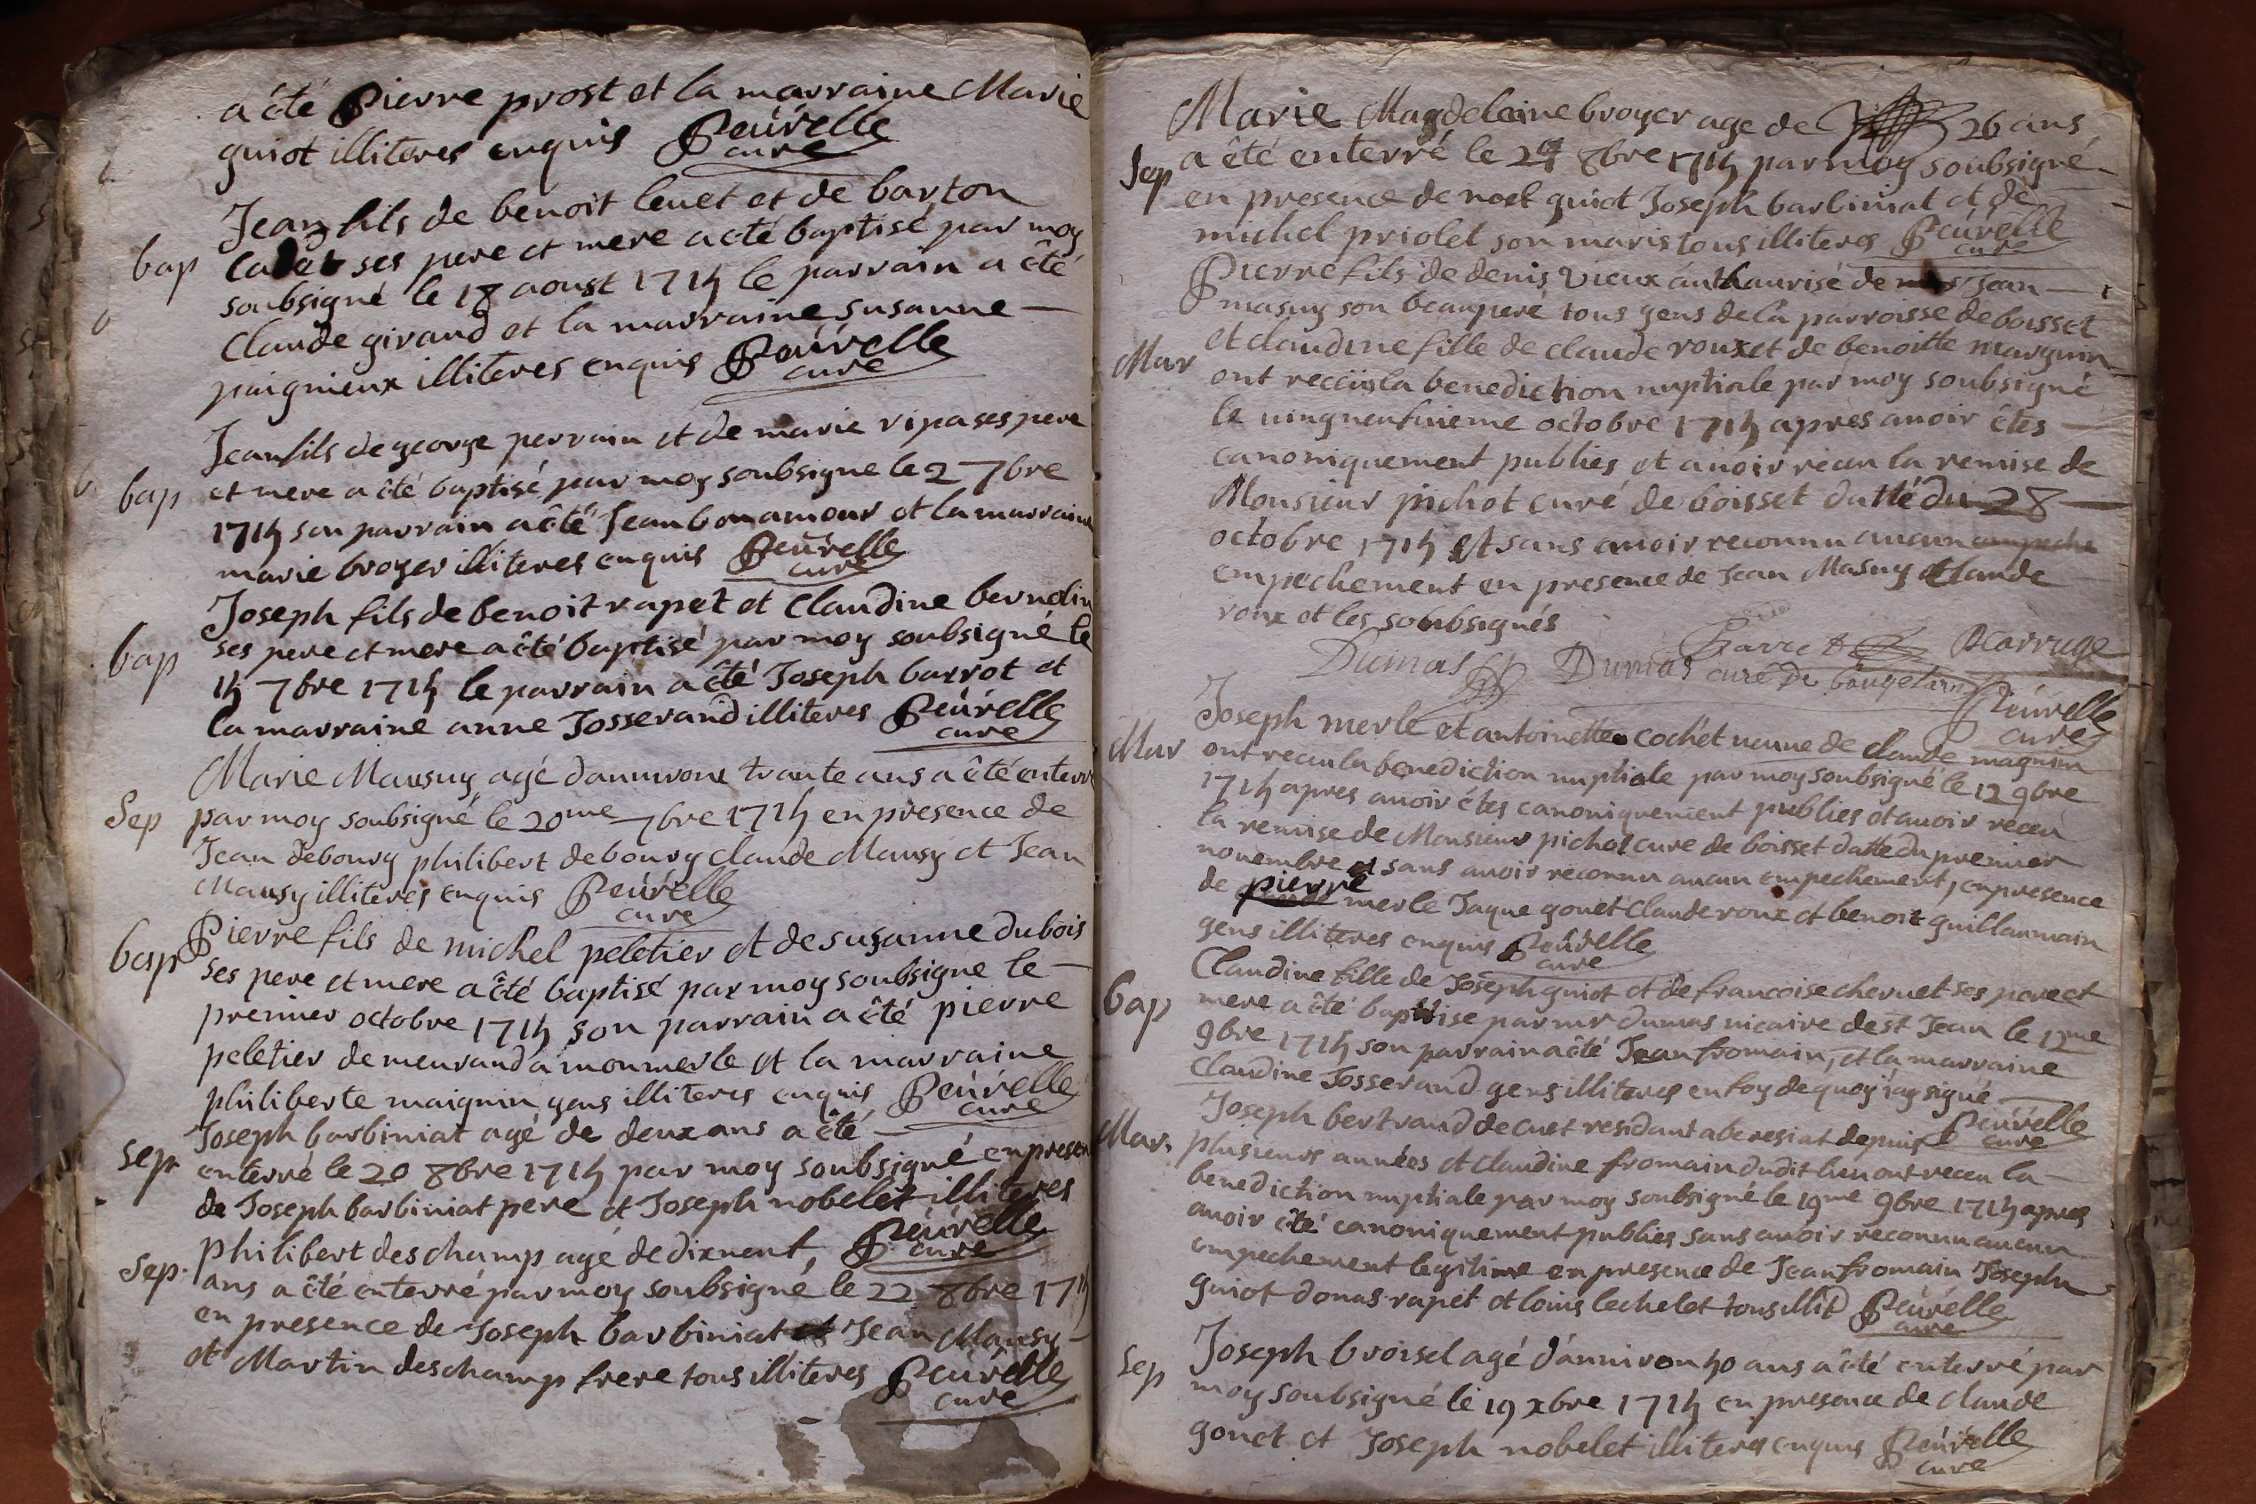 a êté Pierre prost et la marraine Marie
guiot illiteres enquis Peúrelle
curé
Jean fils de benoit levet et de barton
bap
ses pere et mere a cté baptisé par moy
soubsigné le 18 aoust 1714 le parrain a êté
Claude giraud et la marraine susanne
paignieux illiteres enquis Peúrelle
curé
Jean fils de george perrain et de marie ripa ses pere
bap et mere a êté baptisé par moy soubsigne le 2 7bre
1714 son parrain a êté Jean bonamour et la marraine
marie broyer illiteres enquis Peúrelle
curé
Joseph fils de benoit rapet et Claudine bernolin
bap ses pere et mere a êté baptisé par moy soubsigné le
14 7bre 1714 le parrain a êté Joseph barrot et
la marraine anne Josserand illiteres Peúrelle
curé
Marie Mausuy agé danuiron trante ans a êté enterré
Sep par moy soubsigné le 20me 7bre 1714 en presence de
Jean debourg philibert debourg claude Mausy et Jean
Mausy illiteres enquis Peúrelle
curé
Pierre fils de michel peletier et de susanne dubois
bap ses pere et mere a êté baptisé par moy soubsigne le
premier octobre 1714 son parrain a êté pierre
peletier demeurand a monmerle et la marraine
philiberte maignin gens illiteres enquis Peúrelle
curé
Joseph barbiniat agé de deux ans a êté
Sep enterré le 20 8bre 1714 par moy soubsigné en presen
de Joseph barbiniat pere et Joseph nobelet illiteres
Peúrelle
curé
philibert deschamp agé de dixneuf
Sep. ans a êté enterré par moy soubsigné le 22 8bre 1714
en presence de Joseph barbiniat et Jean Mausy
et Martin deschamp frere tous illiteres Peúrelle
curé
Marie Magdeleine broyer age de 26 ans
Sep a êté enterré le 8bre 1714 par moy soubsigné
en presence de noel guiot Joseph barbiniat et de
michel priolet son maris tous illiteres Peúrelle
curé
Pierre fils de denis Vieux authaurisé de Jean
masuy son beaupere tous gens de la parroisse de boisset
Mar et claudine fille de claude roux et de benoitte marguin
ont receüs la benediction nuptiale par moy soubsigné
le uingneufuieme octobre 1714 apres auoir êtes
canoniquement publies et auoir receu la remise de
Monsieur pichot curé de boisset datté du 28
octobre 1714 et sans auoir reconnu aucun empeche
empechement en presence de Jean Masuy et Claude
roux et les soubsignés
Dumas Dumas curé de Bcarruge
Peúrelle
curé
Joseph merle et antoinette cochet ueuue de claude magnin
Mar ont receu la benediction nuptiale par moy soubsigné le 12 9bre
1714 apres auoir êtes canoniquement publies et auoir receu
la remise de Monsieur pichot cure de boisset datte du premier
nouembre et sans auoir reconnu aucun empechement, en presence
de pierre merle Jaque gonet Claude roux et benoit guillaumain
gens illiteres enquis Peúrelle
curé
Claudine fille de Joseph guiot et de francoise cheruet ses pere et
bap mere a êté baptise par mr dumas uicaire de st Jean le 12me
9bre 1714 son parrain a êté Jean fromain, et la marraine
Claudine Josserand gens illiteres en foy de quoy iay signé
Peúrelle
curé
Joseph bertraud de cuet residant a beresiat depuis
Mar. plusieurs années et claudine fromain dudit lieu ont receu la
benediction nuptiale par moy soubsigné le 19me 9bre 1714 apres
auoir êté canoniquement publies sans auoir reconnu aucun
empechement legitime en presence de Jean fromain Joseph
guiot donas rapet et louis lechelet tous illit Peúrelle
curé
Joseph broisel agé danniron 40 ans a êté enterré par
Sep moy soubsigné le 19 xbre 1714 en presence de claude
gonet et Joseph nobelet illiteres enquis Peúrelle
curé